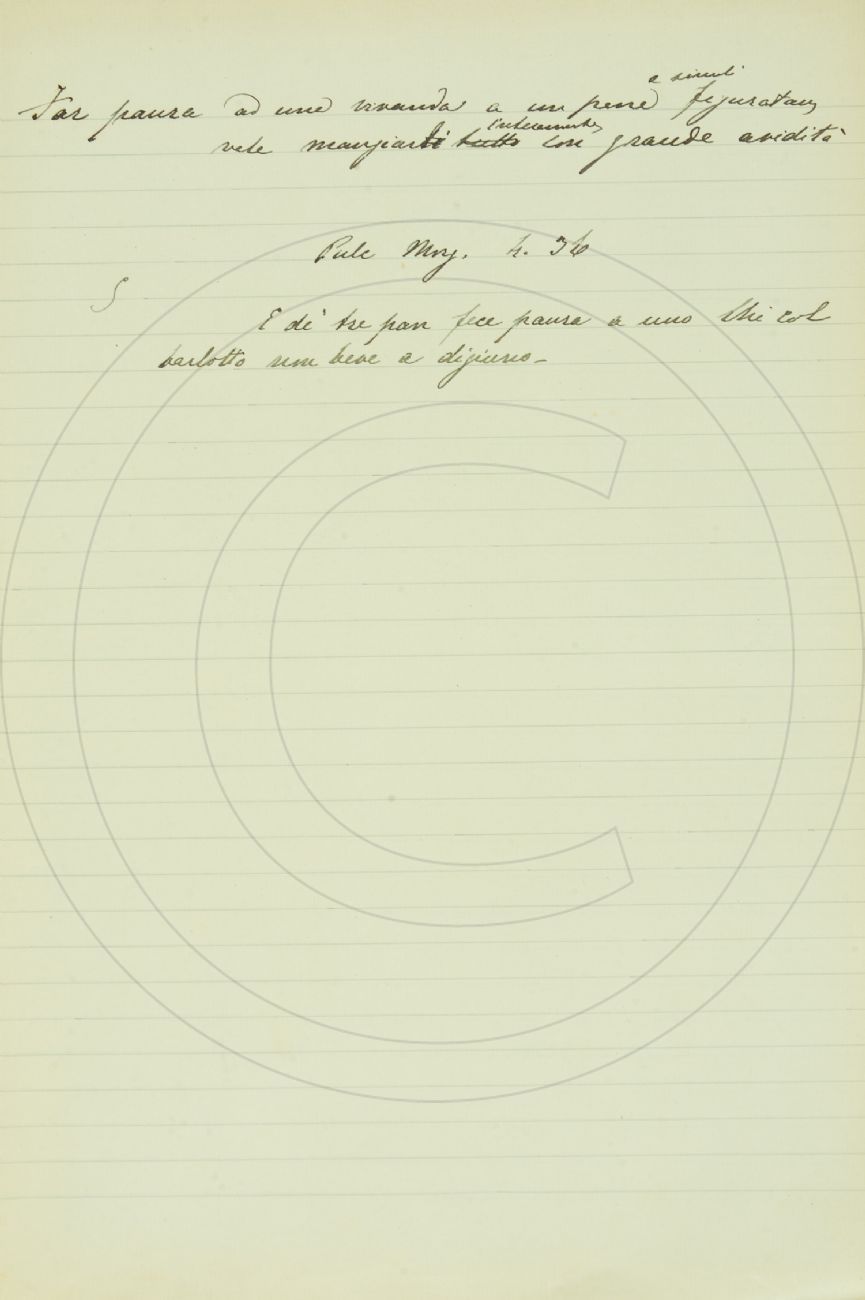 Far paura ad una vivanda a un pane e simili figuratam
vale mangiarli tutto interamente con grande avidità
Pulc Morg. 4. 36
S
E di tre pan fece paura a uno Chi col
barlotto non beve a digiuno -